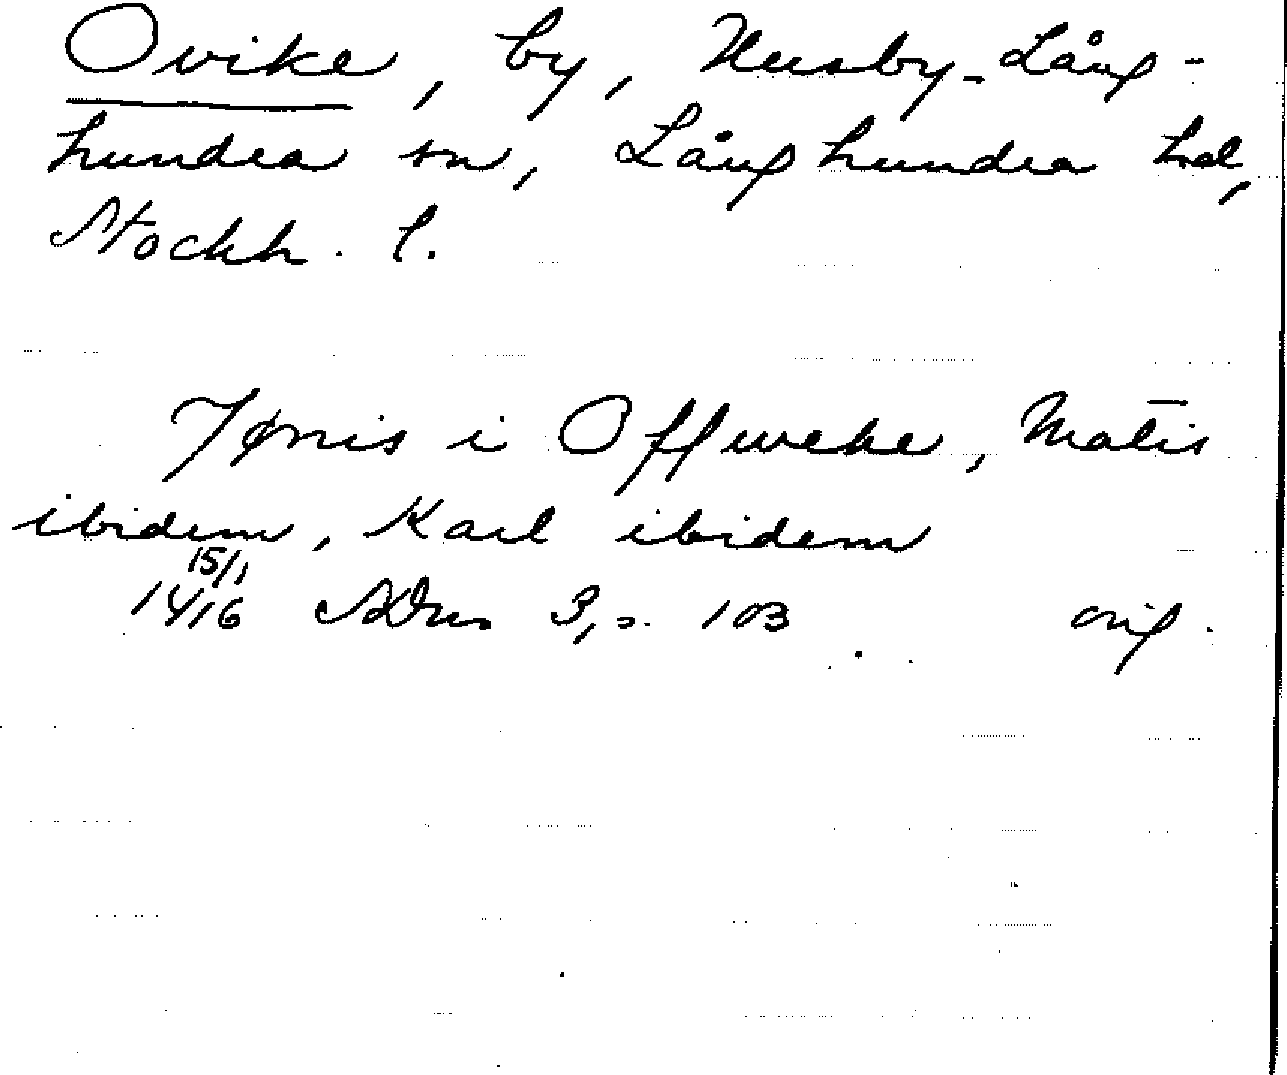 Ovike, by, Husby-Lång-
hundra sn, Långhundra hd,
Stockh. l.
Jønis i Offweke, Matis
ibidem, Karl ibidem
15/1
1416 SDns 3, s. 103 orig.